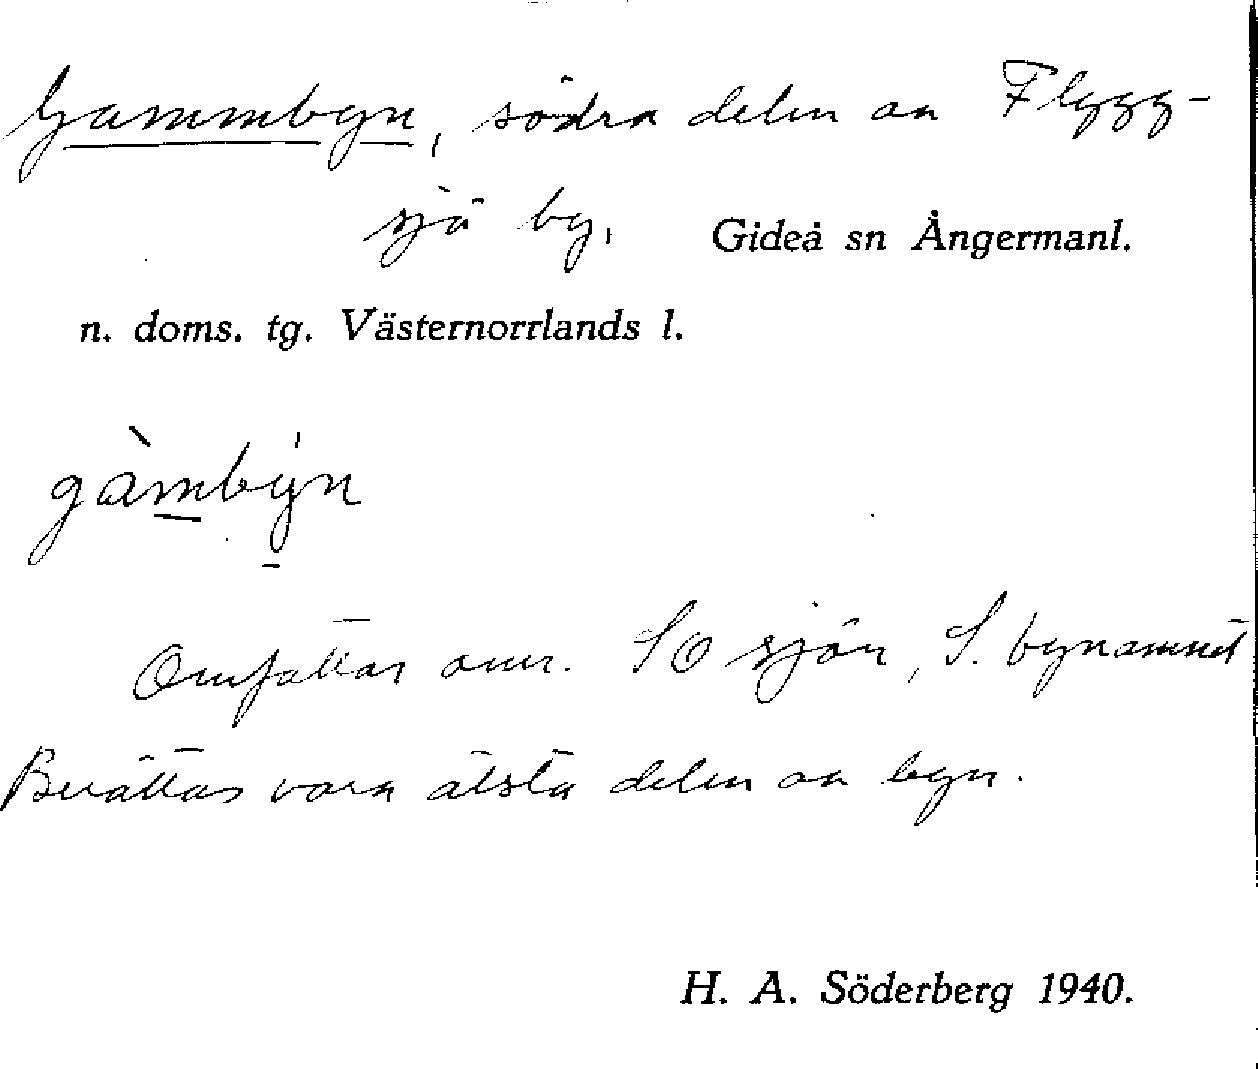 Gammbyn, södra delen av Flygg-
sjö by, Gideå sn Ångermanl.
n. doms. tg. Västernorrlands l.
gàmbýn
Omfattar omr. SO sjön, S.
Berättas vara älsta delen av byn.
H. A. Söderberg 1940.